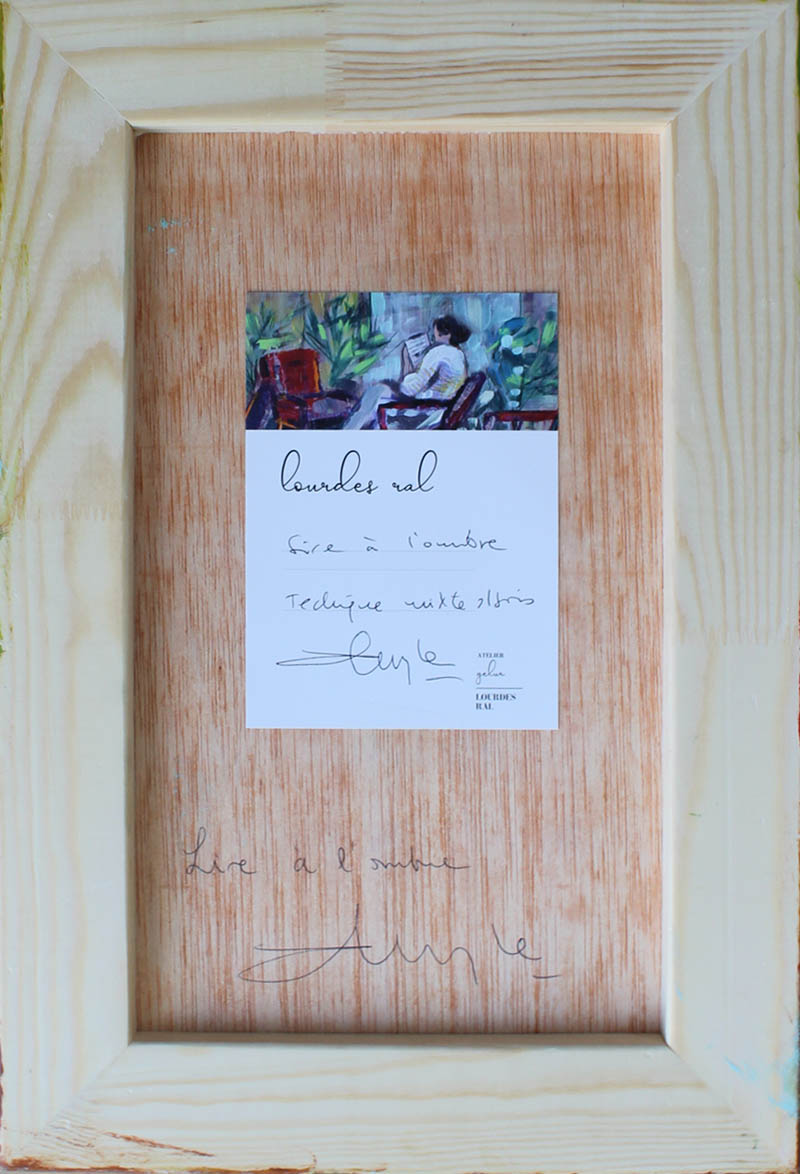 lourdes ral
Lire à l'ombre
Technique mixte s/bois
ATELIER
gelue
LOURDES
RAL
Lire à l'ombre